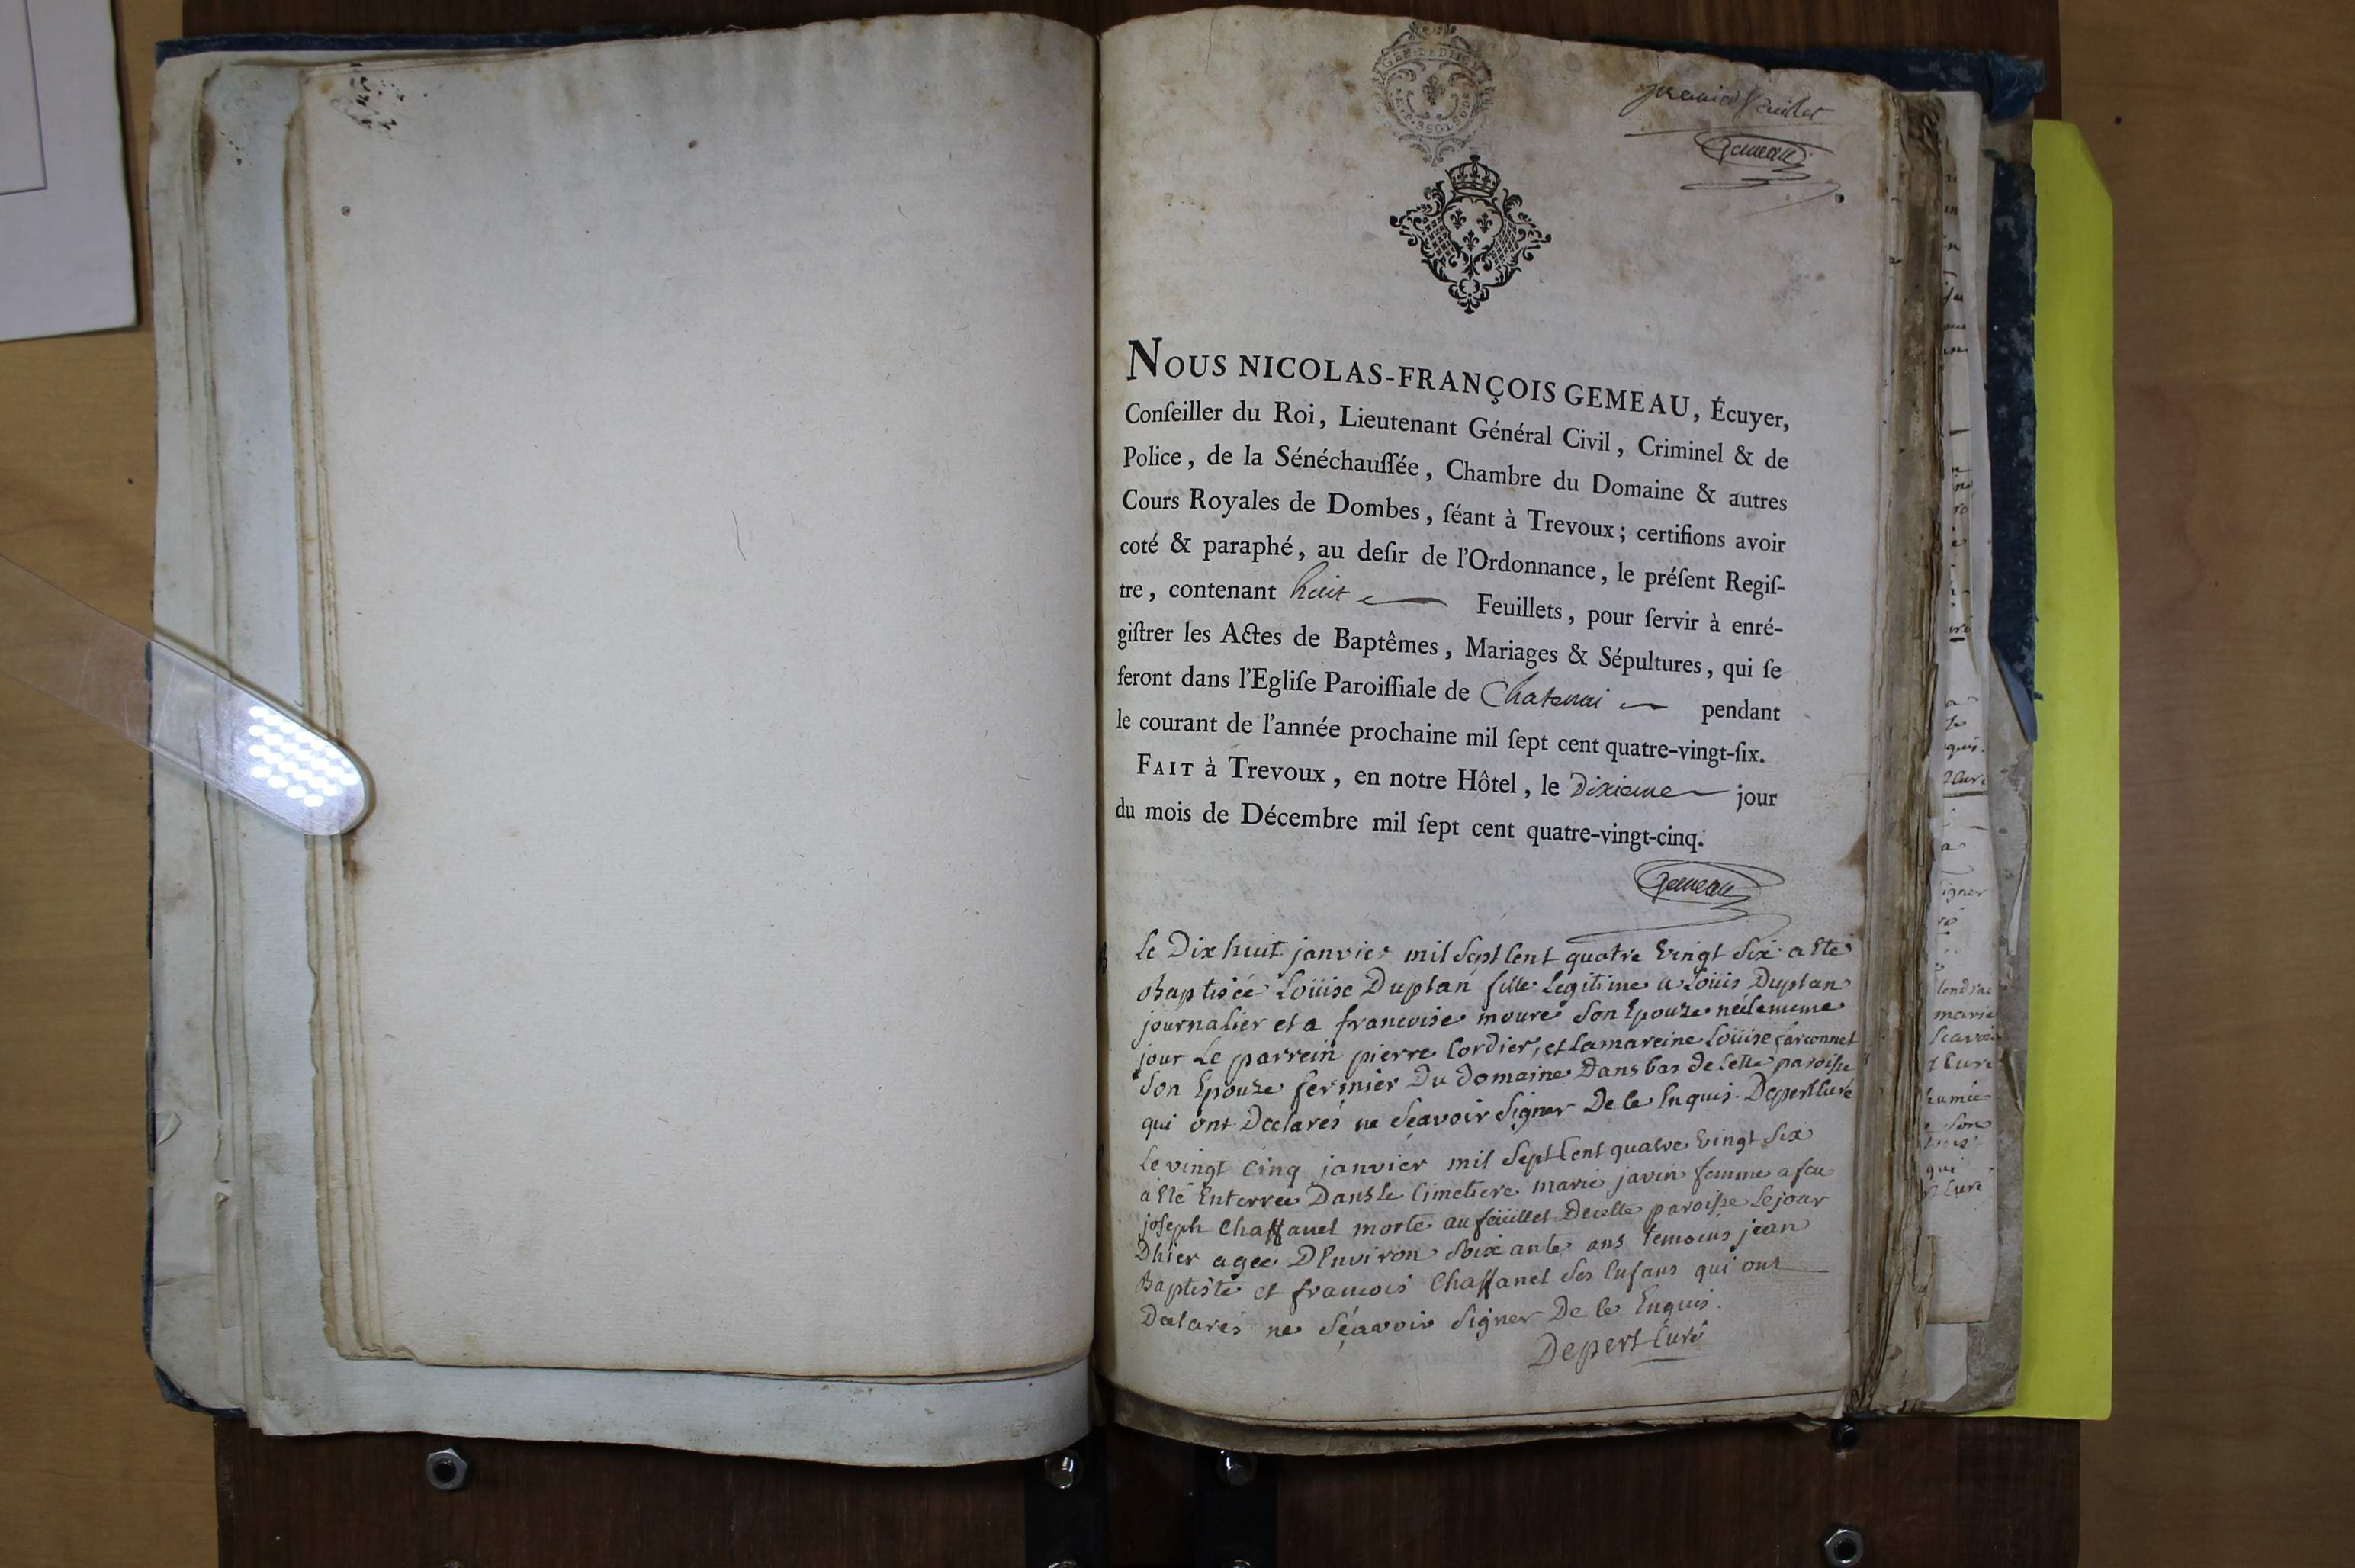 GEN. DE DIJON
premier feuillet
Gemeau
NOUS NICOLAS-FRANÇOIS GEMEAU, Écuyer,
Conſeiller du Roi, Lieutenant Général Civil, Criminel & de
Police, de la Sénéchauſſée, Chambre du Domaine & autres
Cours Royales de Dombes, ſéant à Trevoux; certifions avoir
coté & paraphé, au deſir de l'Ordonnance, le préſent Regiſ-
tre, contenant huit Feuillets, pour ſervir à enré-
giſtrer les Actes de Baptêmes, Mariages & Sépultures, qui ſe
feront dans l'Egliſe Paroiſſiale de Chatenai pendant
le courant de l'année prochaine mil ſept cent quatre-vingt-ſix.
FAIT à Trevoux, en notre Hôtel, le Dixieme jour
du mois de Décembre mil ſept cent quatre-vingt-cinq.
Gemeau
le Dix huit janvier mil Sept Cent quatre vingt Six a Eté
Baptisée Loüise Duplan fille Legitime a Loüis Duplan
journalier et a francoise mouré Son Epouze née le meme
jour Le parrein pierre Cordier, et la mareine Loüise
Son Epouze fermier Du domaine Dans bas de Cette paroisse
qui ont Declarés ne Sçavoir Signer De ce Enquis. Depert Curé
Le vingt Cinq janvier mil Sept Cent quatre vingt Six
a Eté Enterrée Dans le Cimetiere marie javin femme a feu
joseph Chaffanel morte au feüillet De cette paroisse Le jour
Dhier agée D'Environ Soixante ans temoins jean
Baptiste et francois Chaffanel Ses Enfans qui ont
Declarés ne Sçavoir Signer De ce Enquis.
Depert Curé